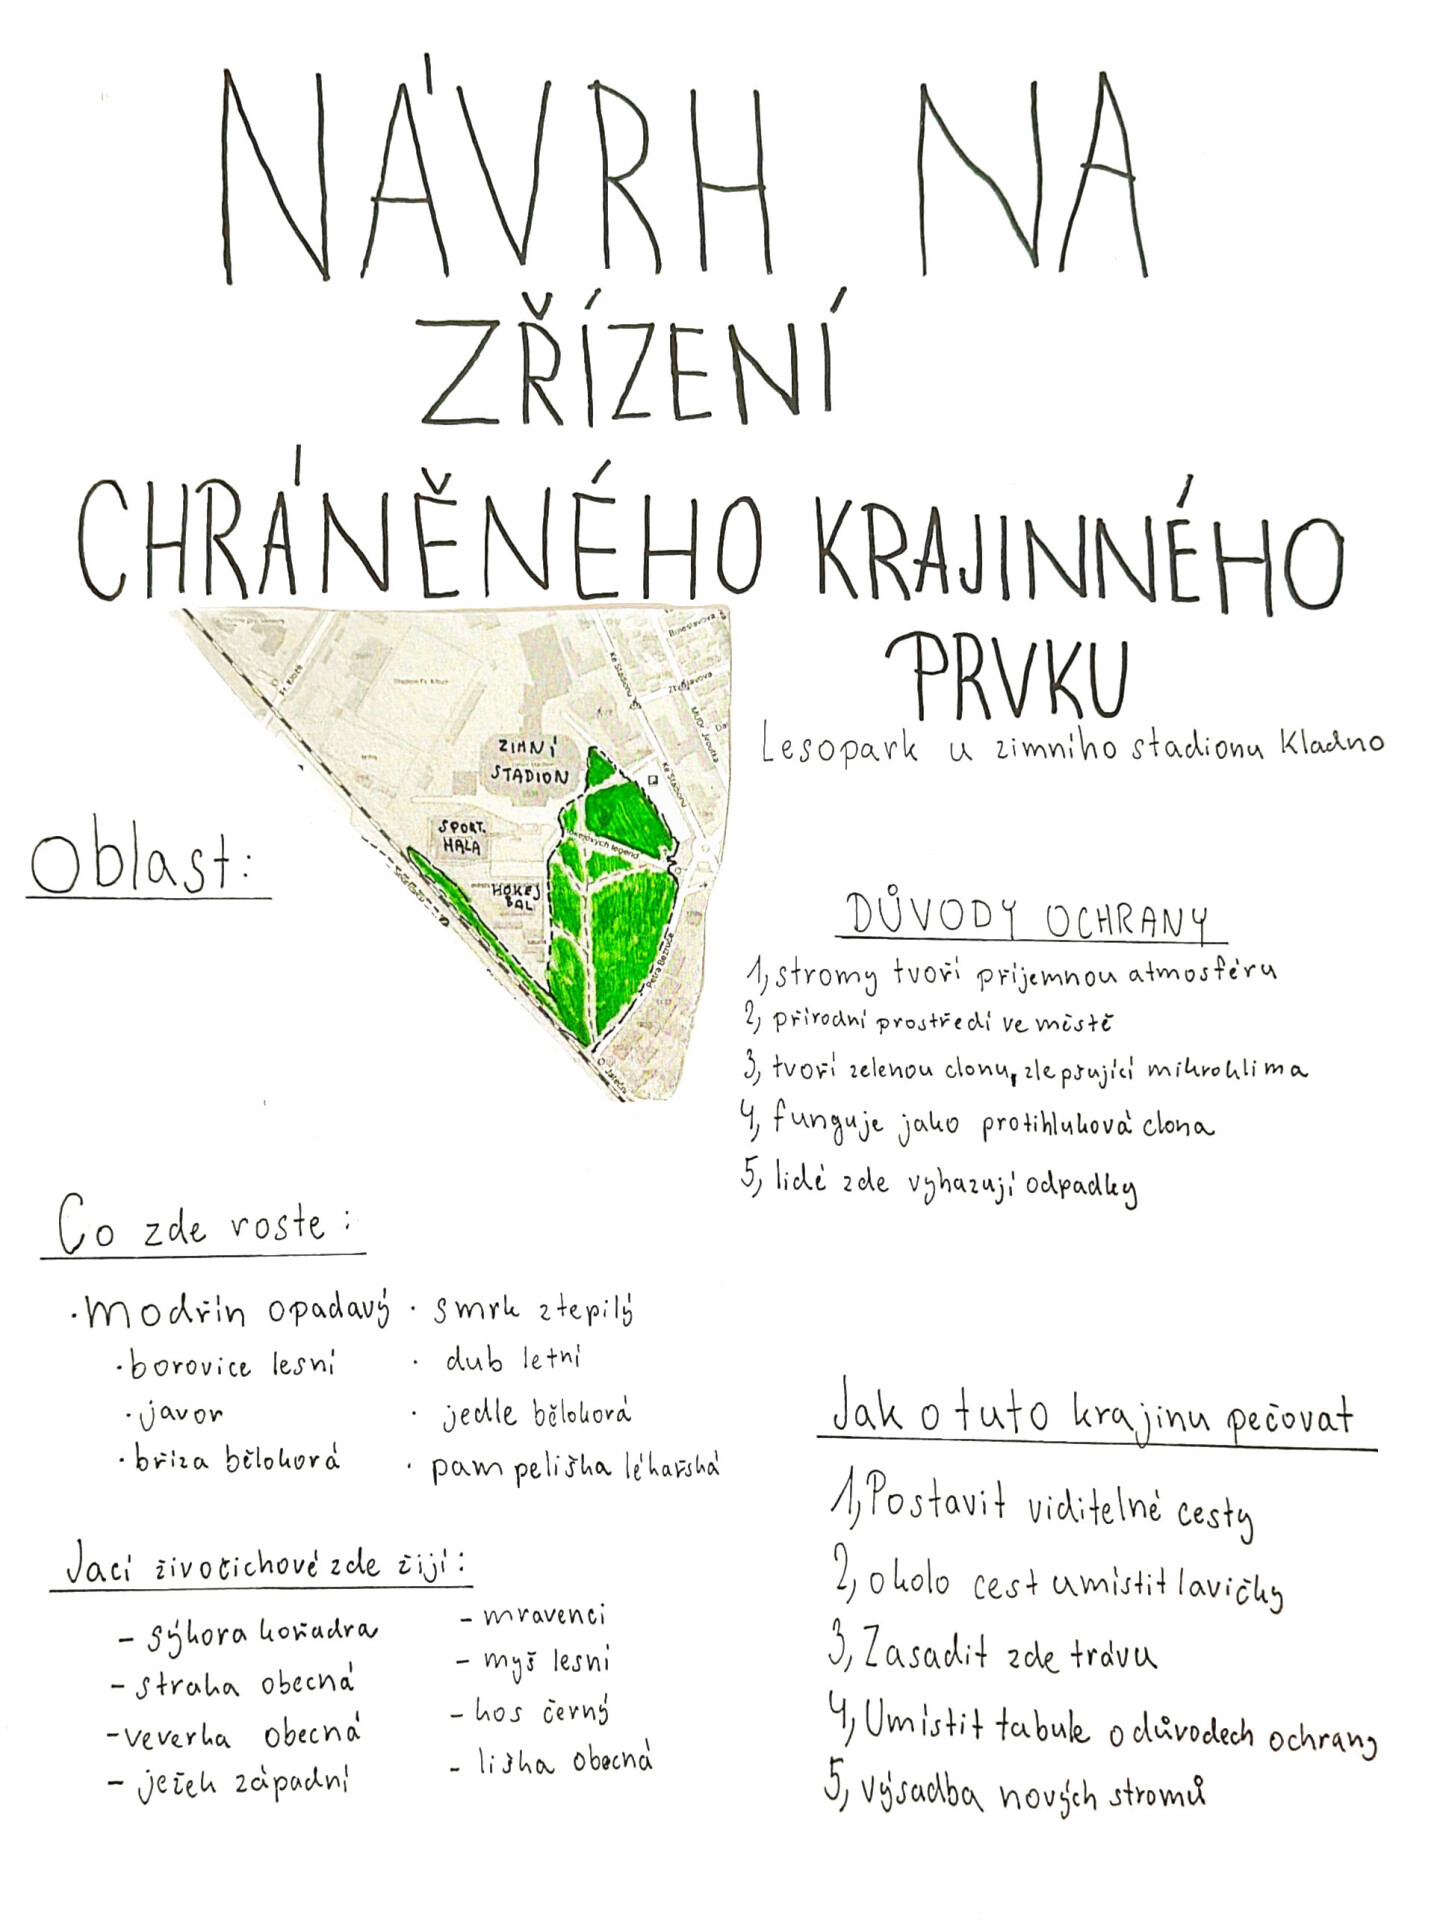 NÁVRH NA
ZŘÍZENÍ
CHRÁNĚNÉHO KRAJINNÉHO
PRVKU
Lesopark u zimního stadionu Kladno
Oblast:
Ft. Kloze
Stadion Fr. Kloze
Ke Stadionu
Boleslavova
MUDr. Jiroudka
Ke Stadionu
ZIMNÍ
STADION
SPORT.
HALA
HOKEJ
BAL
Petra Bezruče
DŮVODY OCHRANY
1, stromy tvoří příjemnou atmosféru
2, přírodní prostředí ve městě
3, tvoří zelenou clonu, zlepšující mikroklima
4, funguje jako protihluková clona
5, lidé zde vyhazují odpadky
Co zde roste:
· modřín opadavý · smrk ztepilý
· borovice lesní · dub letní
· javor · jedle bělokorá
· bříza bělokorá · pampeliška lékařská
Jací živočichové zde žijí:
- sýkora koňadra - mravenci
- straka obecná - myš lesní
- veverka obecná - kos černý
- ježek západní - liška obecná
Jak o tuto krajinu pečovat
1, Postavit viditelné cesty
2, okolo cest umístit lavičky
3, Zasadit zde trávu
4, Umístit tabule o důvodech ochrany
5, výsadba nových stromů